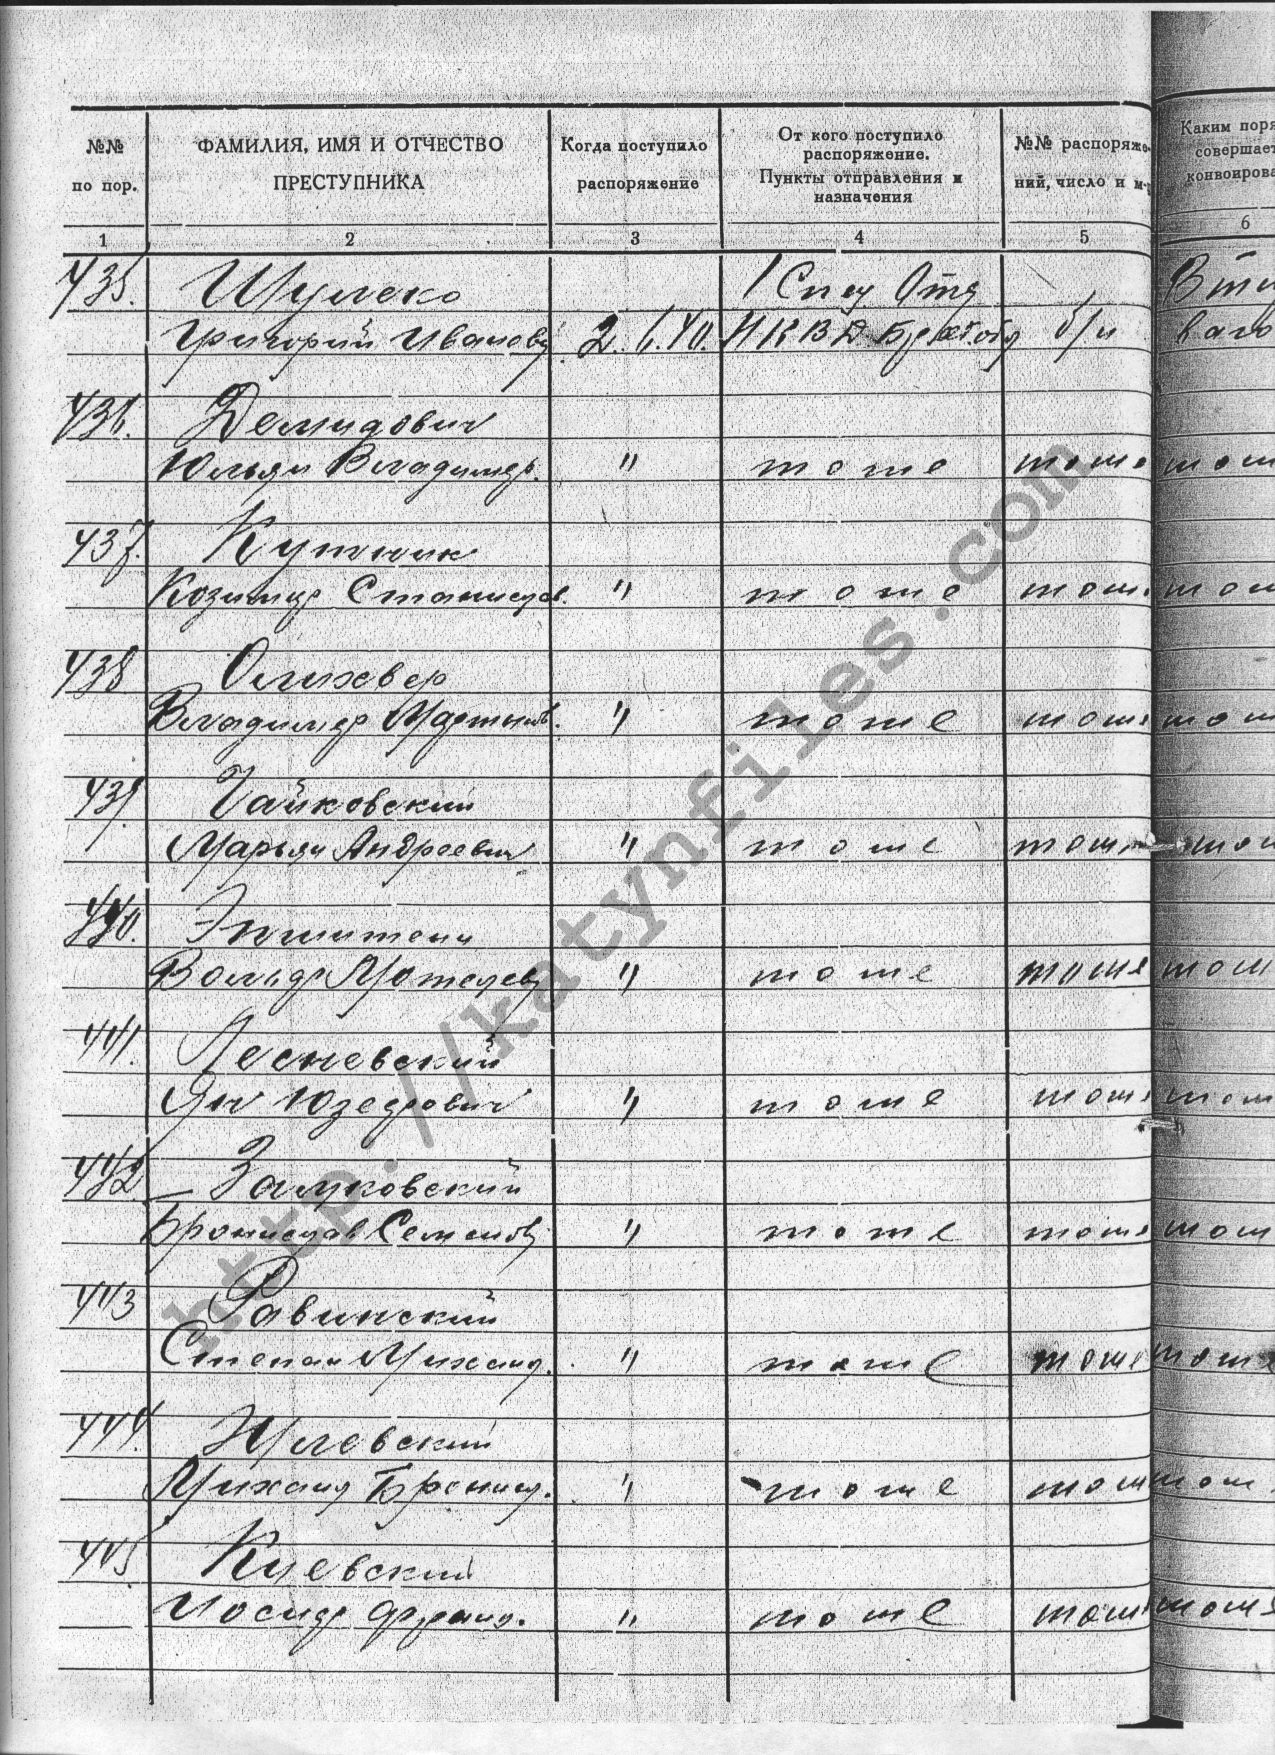 №№ по пор.
ФАМИЛИЯ, ИМЯ И ОТЧЕСТВО
ПРЕСТУПНИКА
Когда поступило
распоряжение
От кого поступило
распоряжение.
Пункты отправления и
назначения
№№ распоряже-
ний, число и м-
Каким поря
совершает
конвоирова
1 2 3 4 5 6
435. Шулеко 1 Спец Отд
Григорий Иванов 2. НКВД б/н ваго
436. Демидович
Юльян Владимир. " тоже тоже тож
437.
Козимир Станислав. " тоже тоже тож
438 Олихвер
Владимир Мартынов. " тоже тоже тож
439 Чайковский
Марьян Андреевич " тоже тоже тож
440. Эпштейн
Вольф " тоже тоже тож
441. Лесневский
Ян Юзефович " тоже тоже тож
442 Замковский
Бронислав Семенов " тоже тоже тож
443 Равинский
Степан Михаил. " тоже тоже тоже
444.
Михаил Бронисл. " тоже тож тож
445 Киевский
Иосиф Франц. " тоже тоже тоже
http://katynfiles.com